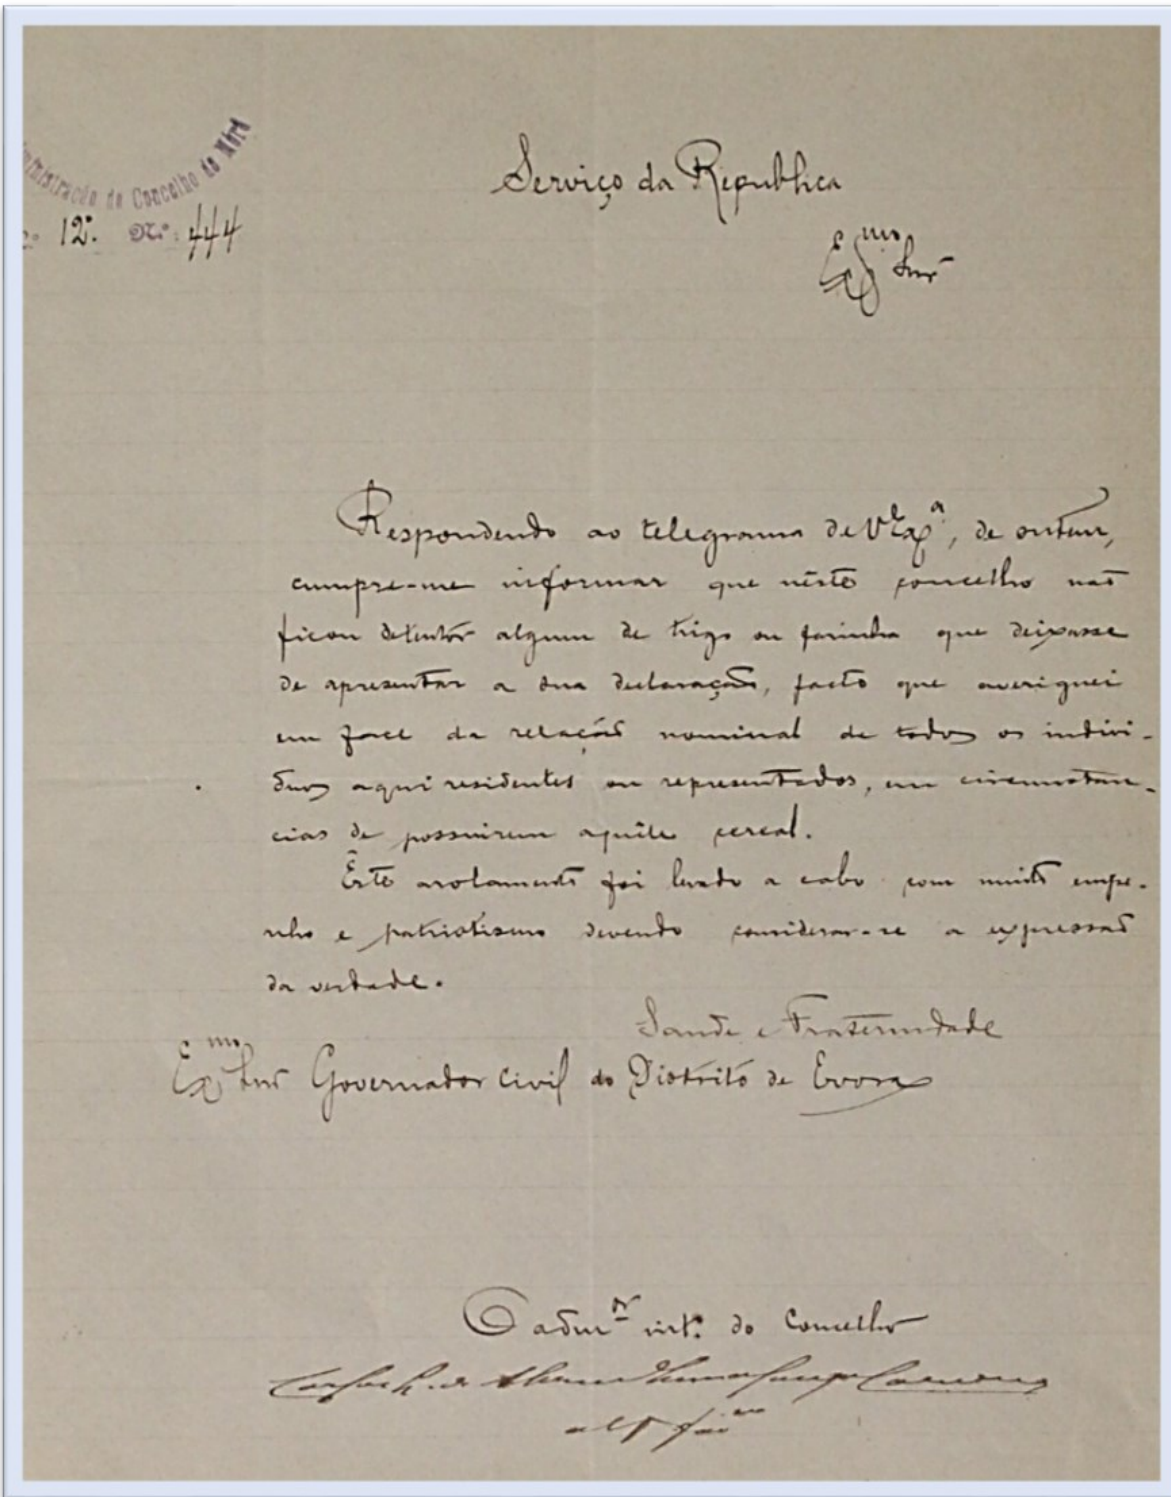 ministração do Concelho de Mora
12ª. Nº: 444
Serviço da Republica
Exmo Snr
Respondendo ao telegrama de V. Exª, de ontem,
cumpre-me informar que nêste concelho não
ficou detentôr algum de trigo ou farinha que deixasse
de apresentar a sua declaração, facto que averiguei
em face da relação nominal de todos os indivi-
duos aqui residentes ou representados, em circunstan-
cias de possuirem aquele cereal.
Êste arolamento foi levado a cabo com muito empe-
nho e patriotismo devendo considerar-se a expressão
da verdade.
Saude e Fraternidade
Exmo Snr Governador Civil do Distrito de Evora
O admor int. do Concelho